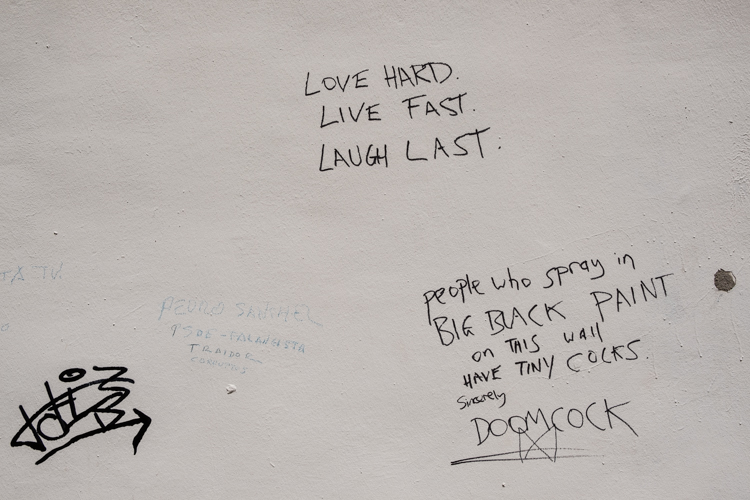 LOVE HARD.
LIVE FAST.
LAUGH LAST.
TA TV
PEDRO SANCHEZ
TRAIDOR
people who spray in
BIG BLACK PAINT
on THIS wall
HAVE TINY COCKS.
Sincerely
DOOMCOCK